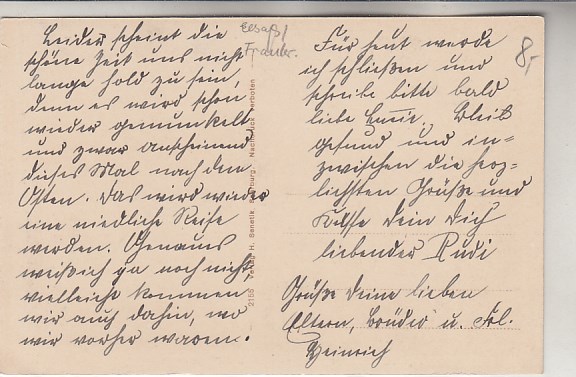 Leider scheint die
schöne Zeit uns nicht
lange hold zu sein,
denn es wird schon
wieder gemunkelt
und zwar anscheinend
dieses Mal nach dem
Osten. Das wird wieder
eine niedliche Reise
werden. Genaues
weiß ich ja noch nicht,
vielleicht kommen
wir auch dahin, wo
wir vorher waren.
Elsaß/
Frankr.
8,-
2159 Verlag H. burg. Nachdruck verboten
Für heut werde
ich schließen und
schreibe bitte bald
liebe Bleib
gesund und in-
zwischen die herz-
lichsten Grüße und
Küsse Dein Dich
liebender Rudi
Grüße Deine lieben
Eltern, u. Frl.
Heinrich